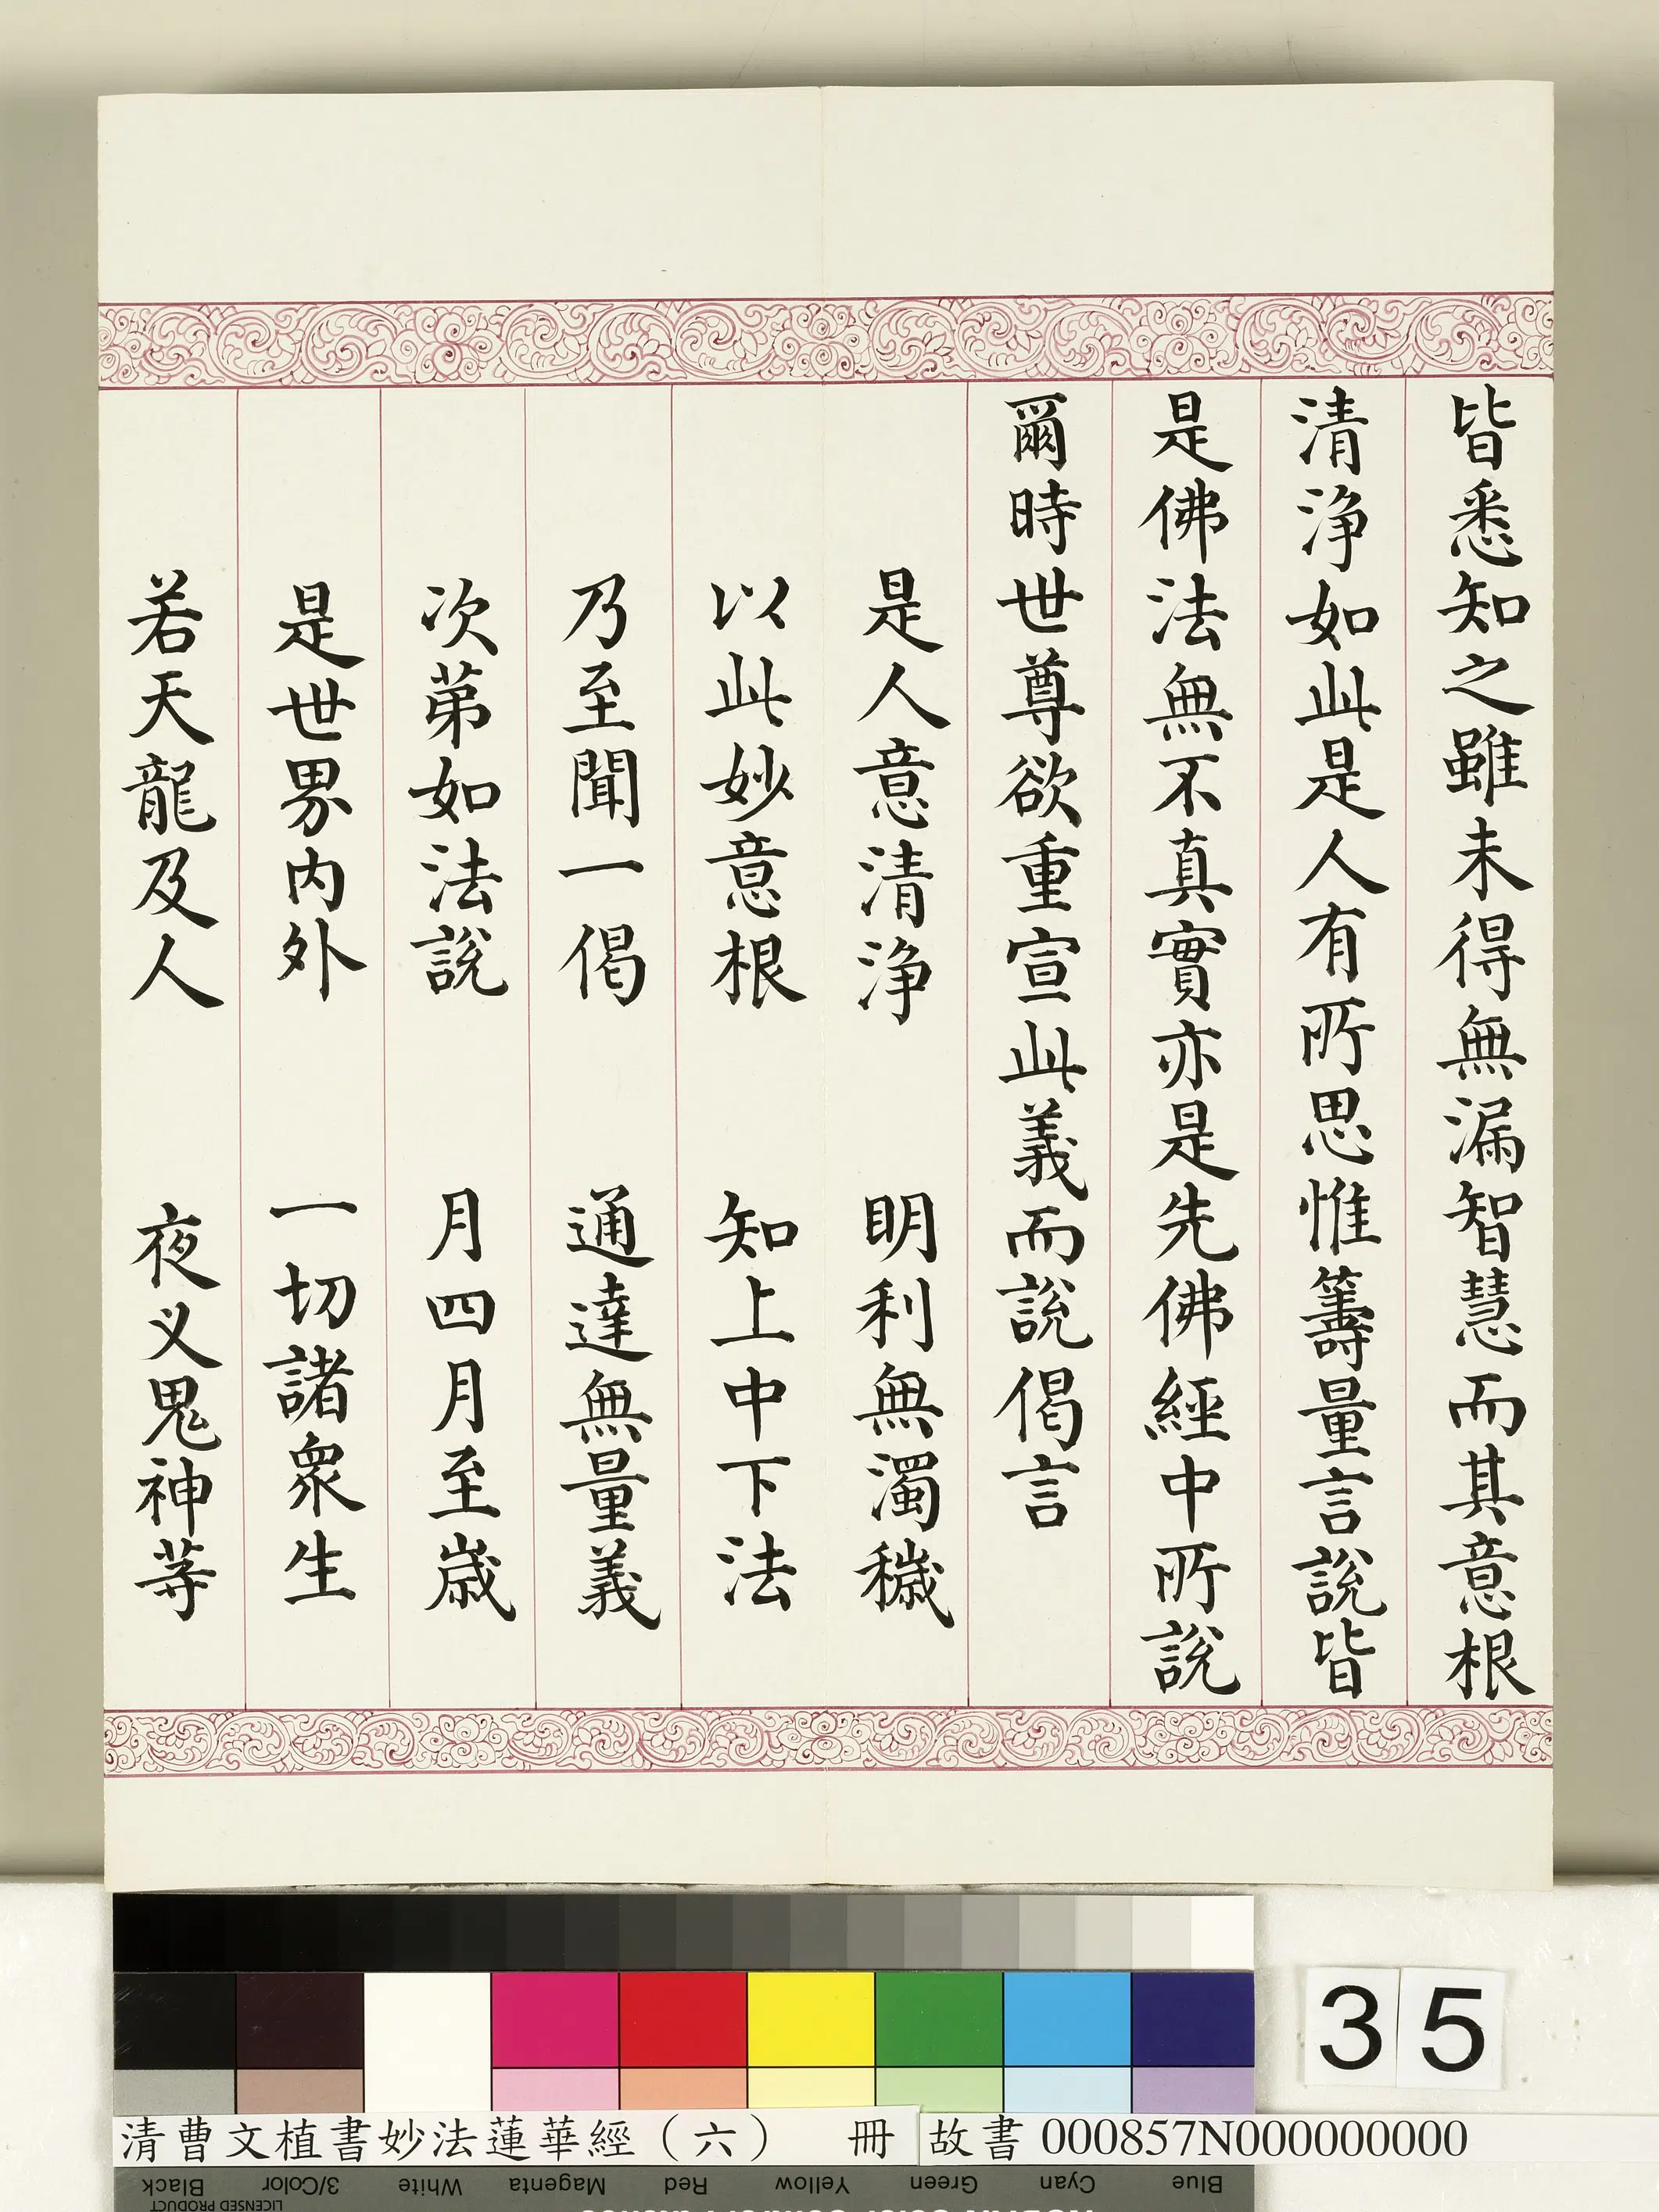 皆悉知之雖未得無漏智慧而其意根
清淨如此是人有所思惟籌量言說皆
是佛法無不真實亦是先佛經中所說
爾時世尊欲重宣此義而說偈言
是人意清淨　明利無濁穢
以此妙意根　知上中下法
乃至聞一偈　通達無量義
次第如法說　月四月至歲
是世界內外　一切諸眾生
若天龍及人　夜叉鬼神等
35
清曹文植書妙法蓮華經（六）　冊
故書 000857N000000000
Black 3/Color White Magenta Red Yellow Green Cyan Blue
LICENSED PRODUCT